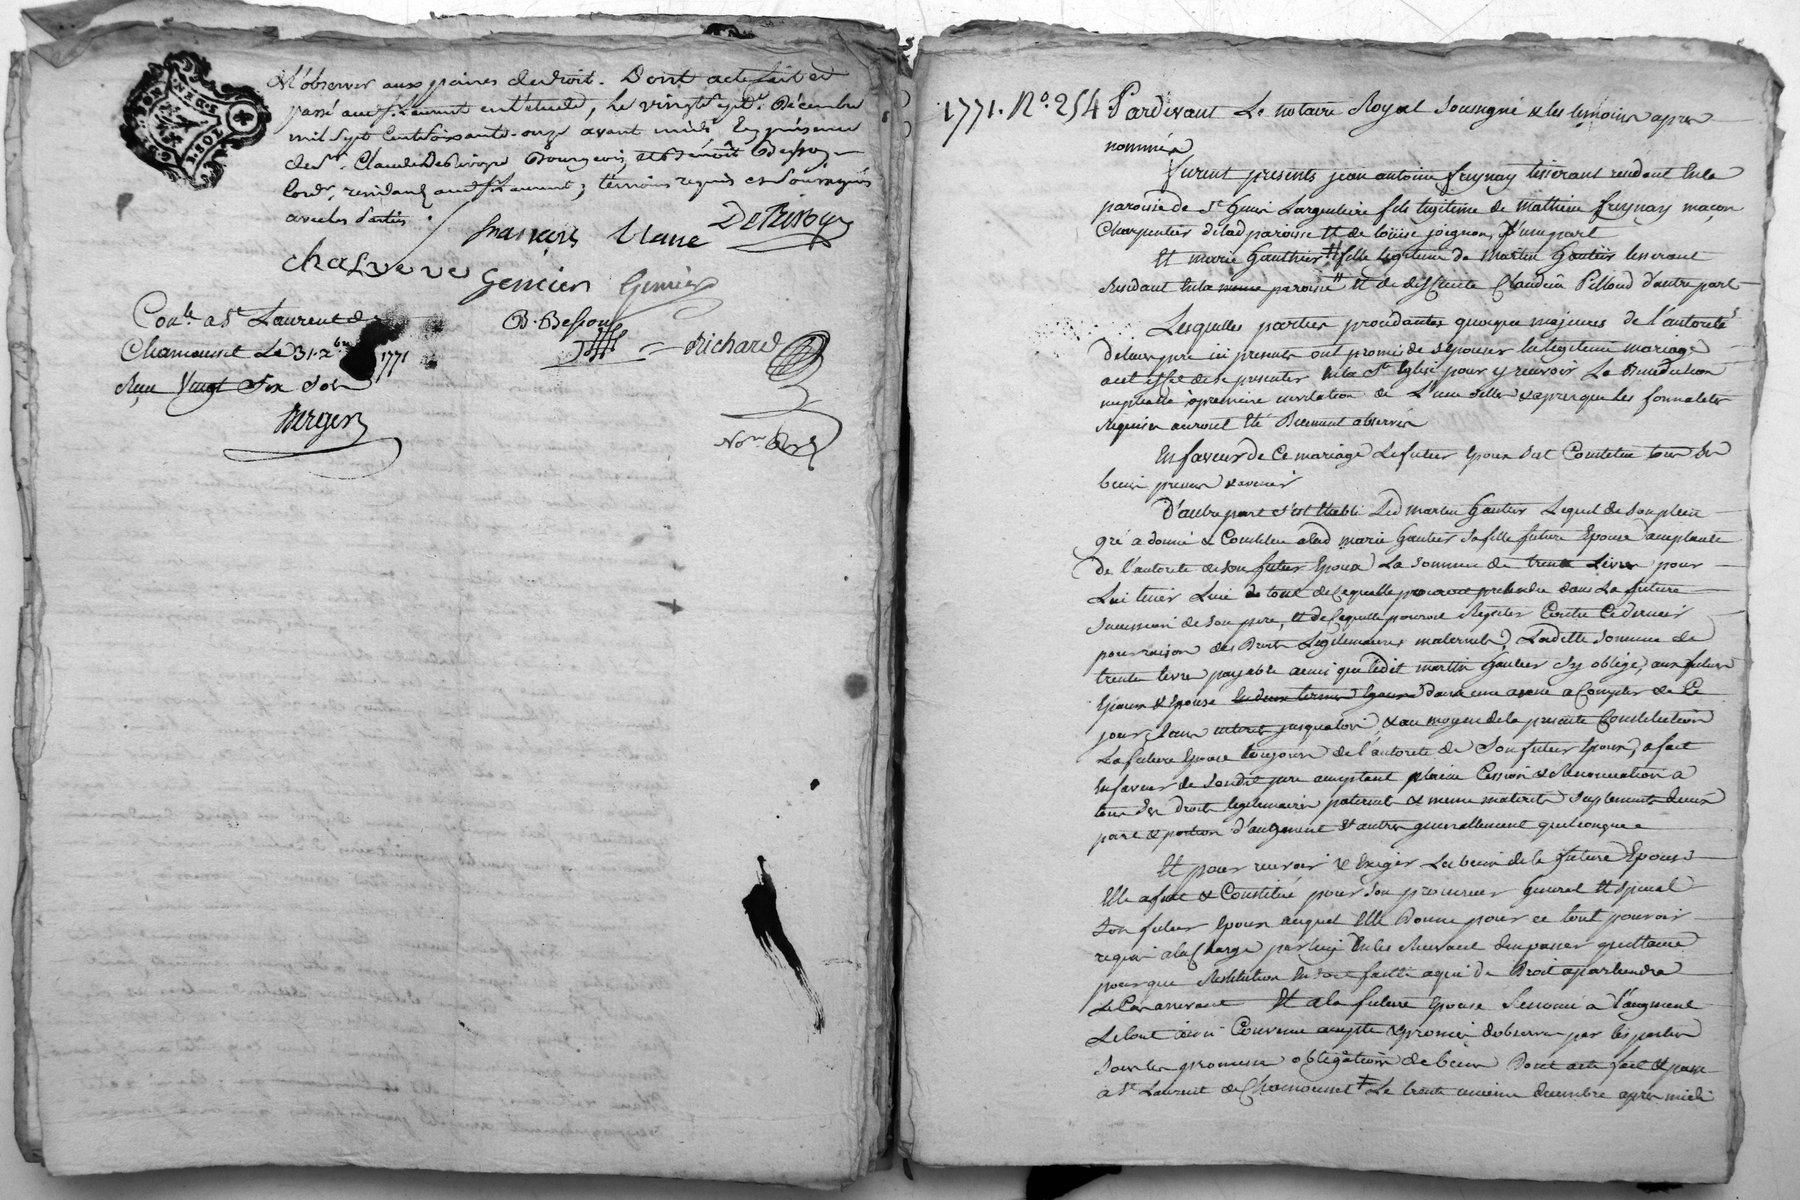 d'observer aux peines de droit. Dont acte fait et
passé aud. St. Laurent en l'étude, le vingt sept. Décembre
mil sept cent soixante onze avant midi En présence
de Sr. Claude Deprivoye Bourgeois, et Benoît Besson
Cord. residants aud. St. Laurent, témoins requis et soussignés
avec les Parties.
François Claire
chalveve Gencien
B. Besson
Richard
Conlé a St Laurent de
Chamousset Le 31 xbre 1771
Reçu Vingt Six Sols
Berger
1771. No. 254 Pardevant Le notaire Royal soussigné & les temoins apres
nommés
furent presents jean antoine freynay tisserant residant en la
paroisse de St Genis Largentiere fils legitime de Mathieu freynay maçon
Charpentier de lad paroisse Et de loüise joignon, d'une part
Et marie Gauthier fille legitime de Martin Gautier tisserant
Residant en la meme paroisse Et de deffuncte Claudine Pilloud d'autre part
Lesquelles parties procedantes quoique majeures de l'autorité
de leurs pere ici presents ont promis de s'epouser en legitime mariage
a cet effet de se presenter En la Ste Eglise pour y recevoir La Benediction
nuptialle a premiere invitation de L'une d'elles & apres que les formalités
requises auront Eté Bienment observées
En faveur de Ce mariage Le futur Epoux s'est Constitué tous ses
biens presens & avenir
D'autre part s'est Etabli Led martin Gautier Lequel de son plein
gré a donné & Constitué a lad marie Gautier sa fille future Epouse acceptante
De l'autorité de son futur Epoux La somme de trente Livres pour
Lui tenir Lieu de tout ce qu'elle pourroit pretendre dans La future
succession de son pere, et de ce qu'elle pourroit Repeter Contre Ce dernier
pour raison des Droits Legitimaires maternels, Ladette somme de
trente livre payable ainsi que ledit martin Gautier s'y oblige, aux futurs
Epoux & Epouse En deux termes Egaux dans une année a Compter de Ce
jour, sans interets jusqu'alors, & au moyen de la presente Constitution
La future Epouse toujours de l'autorité de son futur Epoux, a fait
En faveur de Sondit pere acceptant pleine Cession & Renonciation a
tous ses droits legitimaires paternels & meme maternels suplements d'iceux
part & portion d'augment Et autres generallement quelconques
Et pour recevoir & Exiger Les biens de la future Epouse
Elle a fait & Constitué pour son procureur General Et special
Son futur Epoux auquel Elle Donne pour ce tout pouvoir
requis a la Charge par lui En les Recevant d'en passer quittance
pour que Restitution En soit faitte a qui de Droit apartiendra
Le Cas arrivant Et a la future Epouse Venant a l'augment
Le tout ainsi Convenu accepté & promis d'observer par les parties
sous les promesses obligations de biens Dont acte fait & passé
a St Laurent de Chamousset Le trente unieme decembre apres midi